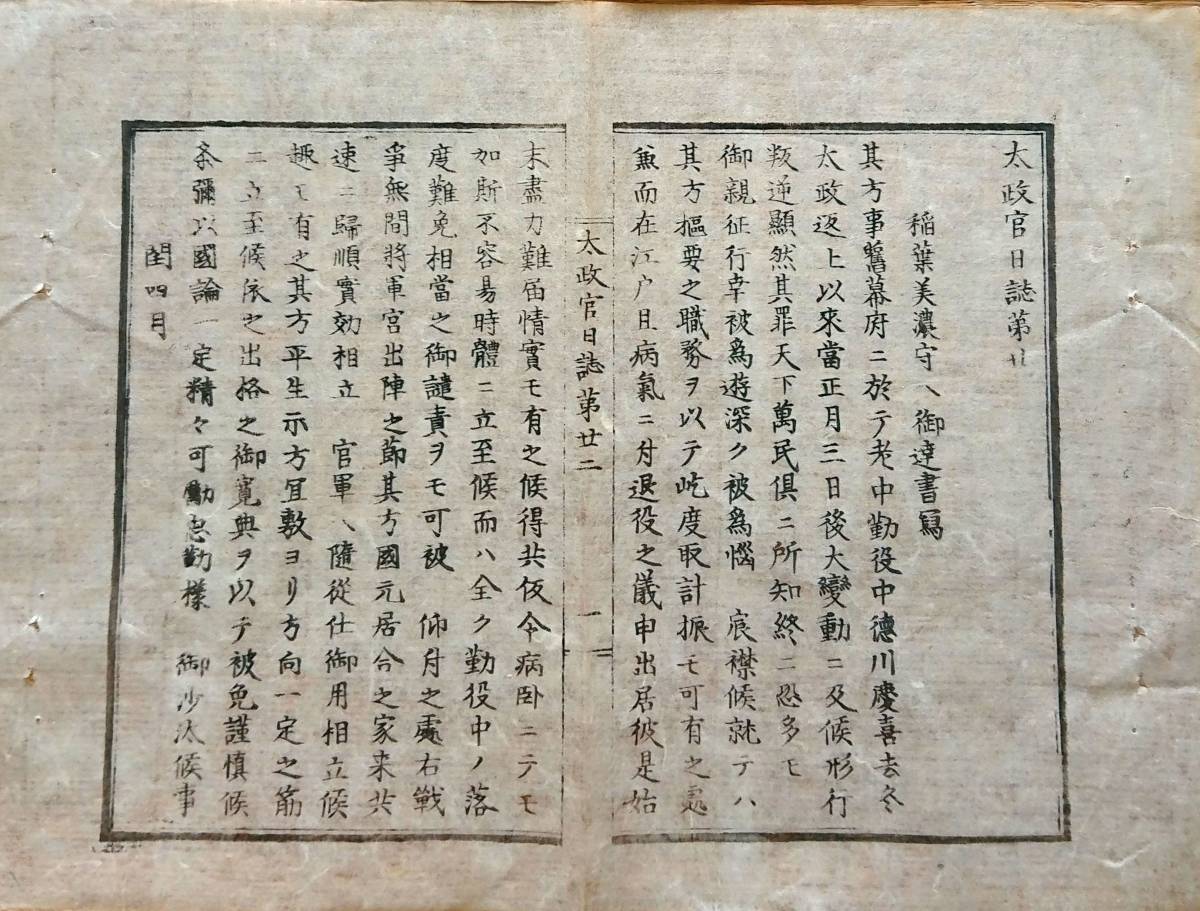 太政官日誌第廿
稲葉美濃守ヘ御達書寫
其方事舊幕府ニ於テ老中勤役中德川慶喜去冬
太政返上以來當正月三日後大變動ニ及候形行
叛逆顯然其罪天下萬民俱ニ所知終ニ恐多モ
御親征行幸被爲遊深ク被爲惱　宸襟候就テハ
其方樞要之職務ヲ以テ屹度取計振モ可有之處
兼而在江户且病氣ニ付退役之儀申出居彼是始
太政官日誌第廿二
一
末盡力難届情實モ有之候得共仮令病卧ニテモ
如斯不容易時體ニ立至候而ハ全ク勤役中ノ落
度難免相當之御譴責ヲモ可被　仰付之處右戰
爭無間將軍宮出陣之節其方國元居合之家来共
速ニ歸順實効相立　官軍ヘ隨從仕御用相立候
趣モ有之其方平生示方冝敷ヨリ方向一定之筋
ニ立至候依之出格之御寬典ヲ以テ被免謹愼候
条彌以國論一定精々可勵忠勤樣　御沙汰候事
閏四月